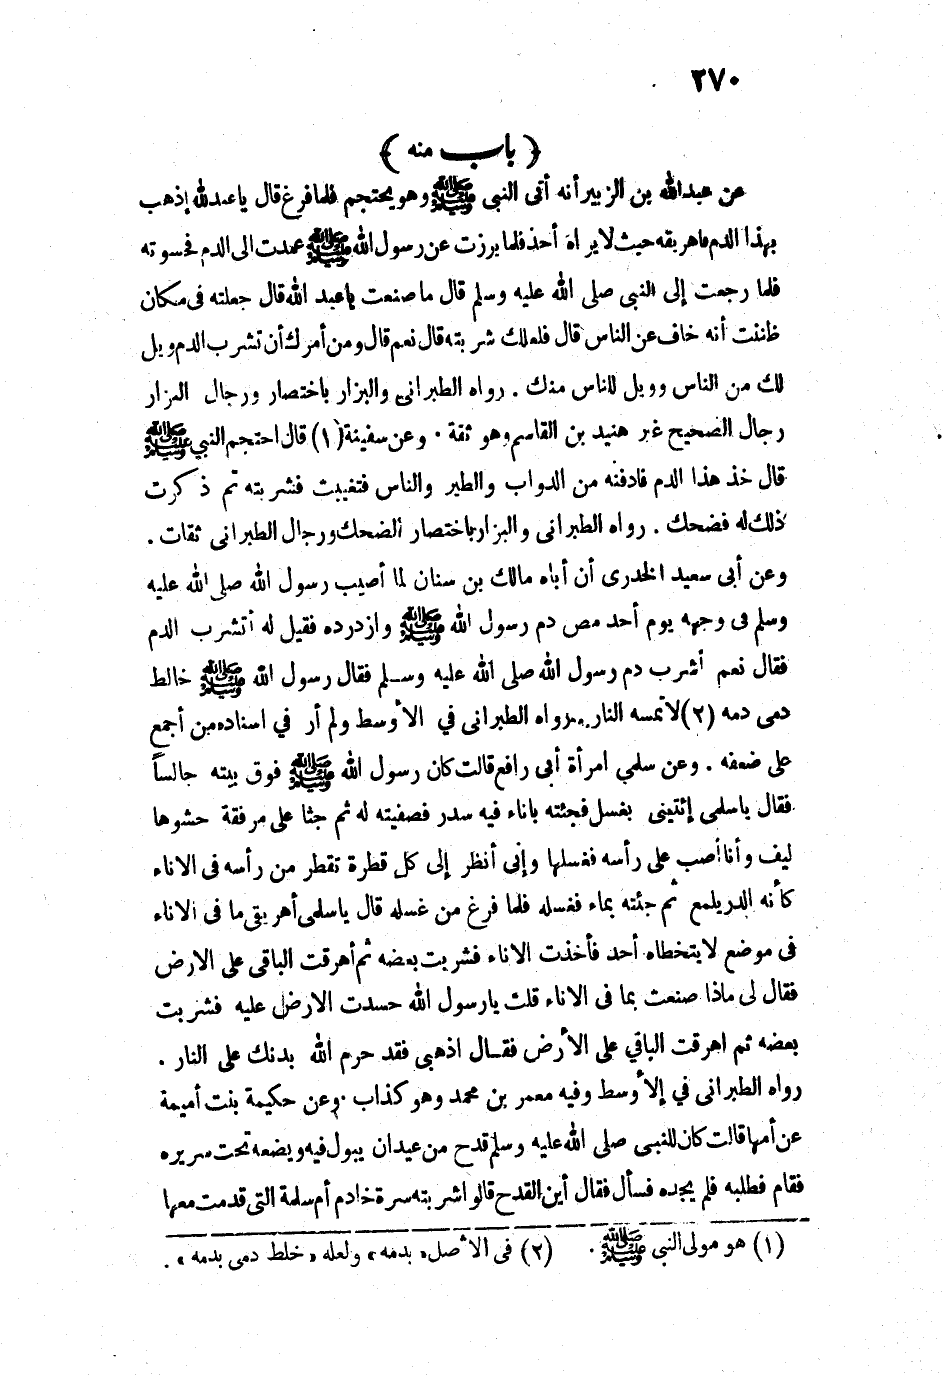 ٢٧٠
﴿ باب منه ﴾
عن عبدالله بن الزبير أنه أتى النبي ﷺ وهو يحتجم فلما فرغ قال ياعبدلله إذهب
بهذا الدم فاهريقه حيث لا يراه أحد فلما برزت عن رسول الله ﷺ عمدت الى الدم فحسوته
فلما رجعت إلى النبي صلى الله عليه وسلم قال ما صنعت ياعبد الله قال جعلته فى مكان
ظننت أنه خاف عن الناس قال فلعلك شربته قال نعم قال ومن أمرك أن تشرب الدم ويل
لك من الناس وويل للناس منك . رواه الطبرانى والبزار باختصار ورجال البزار
رجال الصحيح غير هنيد بن القاسم وهو ثقة . وعن سفينة (١) قال احتجم النبي ﷺ
قال خذ هذا الدم فادفنه من الدواب والطير والناس فتغيبت فشربته ثم ذكرت
ذلك له فضحك . رواه الطبرانى والبزار باختصار الضحك ورجال الطبرانى ثقات .
وعن أبى سعيد الخدرى أن أباه مالك بن سنان لما أصيب رسول الله صلى الله عليه
وسلم فى وجهه يوم أحد مص دم رسول الله ﷺ وازدرده فقيل له أتشرب الدم
فقال نعم أشرب دم رسول الله صلى الله عليه وسلم فقال رسول الله ﷺ خالط
دمى دمه (٢) لا تمسه النار . رواه الطبرانى في الأوسط ولم أر في اسناده من أجمع
على ضعفه . وعن سلمي امرأة أبى رافع قالت كان رسول الله ﷺ فوق بيته جالساً
فقال ياسلمى إئتينى بغسل فجئته باناء فيه سدر فصفيته له ثم جثا على مرفقة حشوها
ليف وأنا أصب على رأسه فغسلها وإنى أنظر إلى كل قطرة تقطر من رأسه فى الاناء
كأنه الدر يلمع ثم جئته بماء فغسله فلما فرغ من غسله قال ياسلمى أهريقى ما فى الاناء
فى موضع لا يتخطاه أحد فأخذت الاناء فشربت بعضه ثم أهرقت الباقى على الارض
فقال لى ماذا صنعت بما فى الاناء قلت يارسول الله حسدت الارض عليه فشربت
بعضه ثم اهرقت الباقي على الأرض فقال اذهبى فقد حرم الله بدنك على النار .
رواه الطبرانى في الأوسط وفيه معمر بن محمد وهو كذاب . وعن حكيمة بنت أميمة
عن أمها قالت كان للنبى صلى الله عليه وسلم قدح من عيدان يبول فيه ويضعه تحت سريره
فقام فطلبه فلم يجده فسأل فقال أين القدح قالوا شربته سرة خادم أم سلمة التى قدمت معها
(١) هو مولى النبي ﷺ . (٢) فى الأصل « بدمه » ولعله « خلط دمى بدمه » .